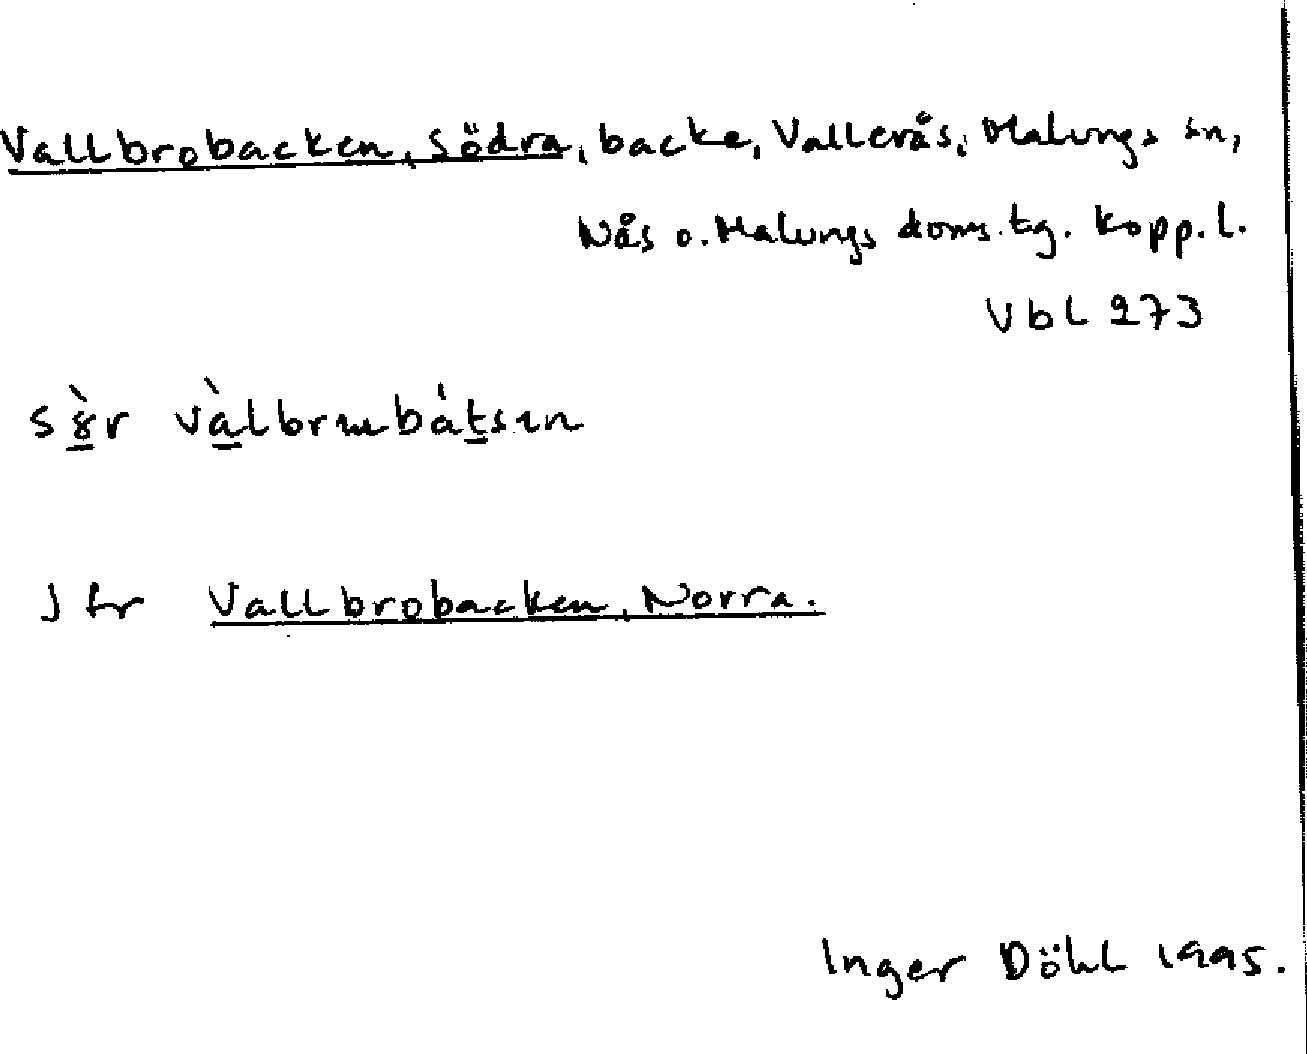 Vallbrobacken, Södra, backe, Vallerås, Malungs sn,
Nås o. Malungs doms. tg. Kopp. l.
Vbl 273
Jfr Vallbrobacken, Norra.
Inger Döhl 1995.